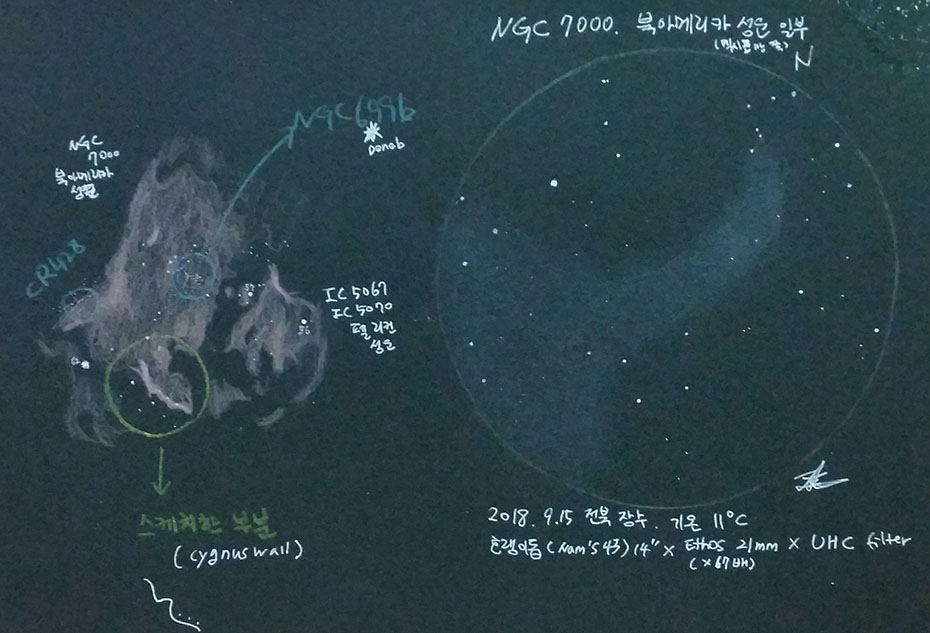 NGC 7000. 북아메리카 성운 일부
(멕시코만 쪽)
N
NGC 6996
Deneb
NGC
7000
북아메리카
성운
CR428
IC 5067
IC 5070
펠리컨
성운
57
56
스케치한 부분
(cygnus wall)
2018. 9.15 전북 장수. 기온 11°C
(Nam's 4호) 14" × Ethos 21mm × UHC filter
(×67배)